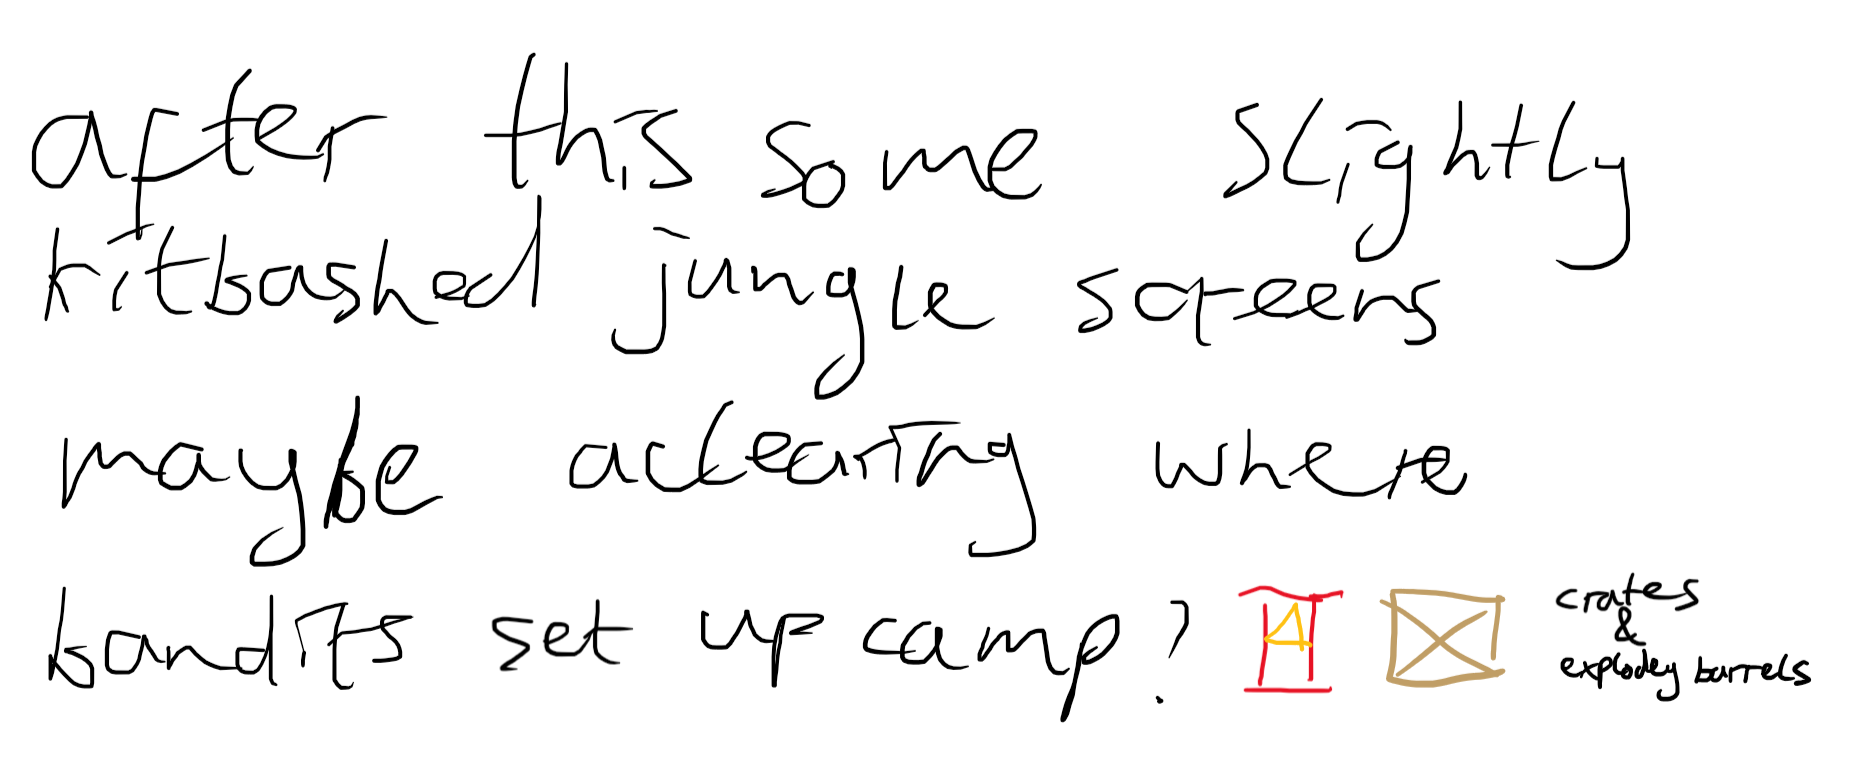 after this some slightly
kitbashed jungle screens
maybe a clearing where
bandits set up camp?
crates
&
explodey barrels